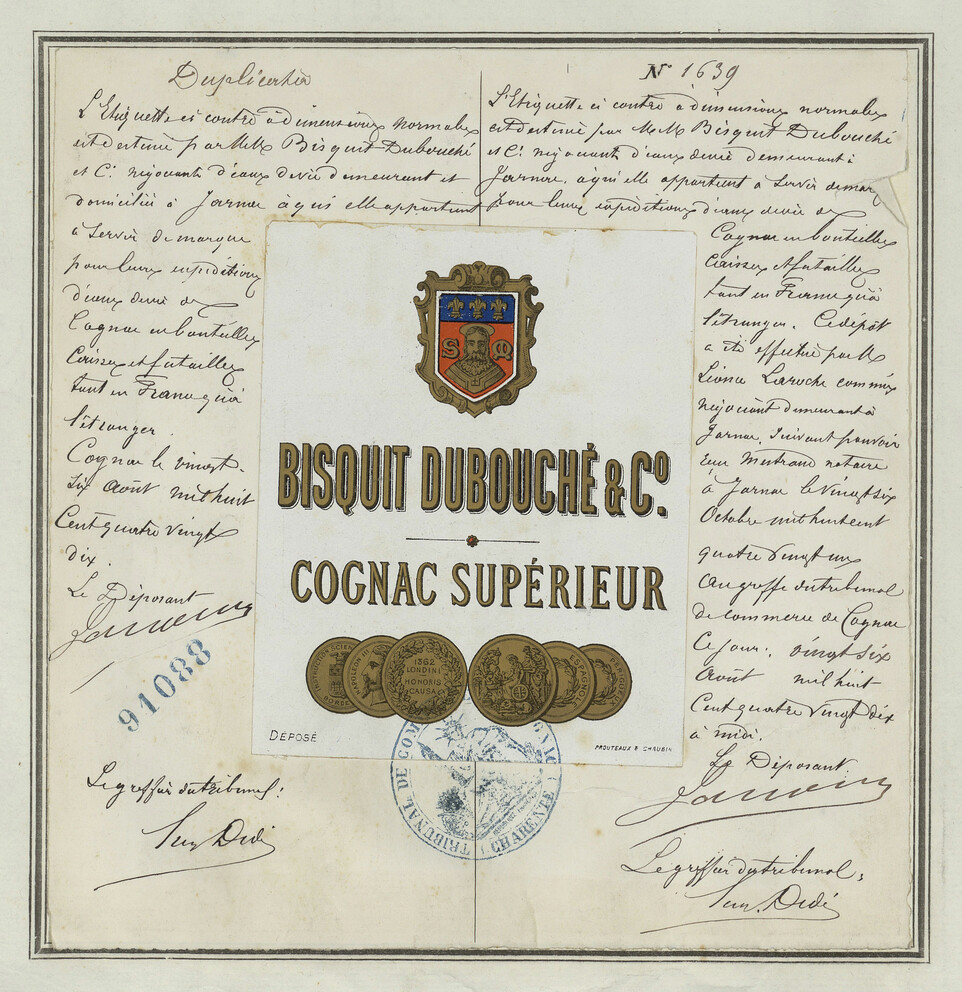 Duplicata
L'Etiquette ci contre à dimensions normales
est destinée par MM Bisquit Dubouché
et Cie négociants d'eaux de vie demeurant et
domiciliés à Jarnac à qui elle appartient
à servir de marque
pour leurs expéditions
d'eaux de vie de
Cognac en bouteilles
Caisses et futailles
tant en France qu'à
l'étranger.
Cognac le vingt-
six Août mil huit
Cent quatre vingt
dix.
Le Déposant
91088
Le greffier du tribunal:
No 1639
L'Etiquette ci contre à dimensions normales
est destinée par MM Bisquit Dubouché
et Cie négociants d'eaux de vie demeurant à
Jarnac, à qui elle appartient à servir de marq
pour leurs expéditions d'eaux de vie de
Cognac en bouteilles
Caisses et futailles
tant en France qu'à
l'étranger. Ce dépôt
a été effectué par M
Léonce Laroche commis
négociant demeurant à
Jarnac, suivant pouvoir
notaire
à Jarnac le vingt six
Octobre mil huit cent
quatre vingt un
Au greffe du tribunal
de commerce de Cognac
Ce jour, vingt six
Août mil huit
Cent quatre vingt dix
à midi.
Le Déposant
Le greffier du tribunal:
BISQUIT DUBOUCHÉ & Co.
COGNAC SUPÉRIEUR
NAPOLEON III
1862
LONDINI
HONORIS
CAUSA
ESPAGNOL
DÉPOSÉ
PROUTEAUX & CHRUBIN
TRIBUNAL DE COM
CHARENTE